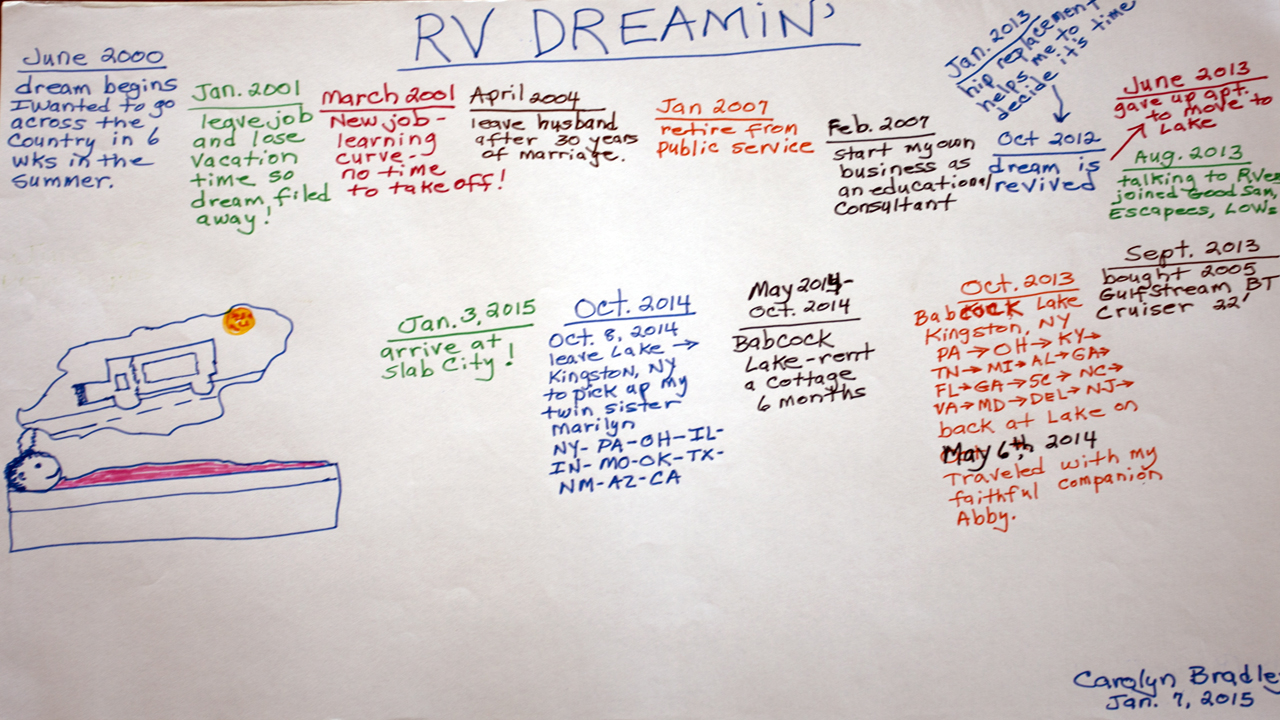 RV DREAMIN'
June 2000
dream begins
I wanted to go
across the
Country in 6
wks in the
Summer.
Jan. 2001
leave job
and lose
vacation
time so
dream filed
away!
March 2001
New job -
learning
curve -
no time
to take off!
April 2004
leave husband
after 30 years
of marriage.
Jan 2007
retire from
public service
Feb. 2007
start my own
business as
an educational
consultant
Jan. 2013
hip replacement
helps me to
decide it's time
Oct 2012
dream is
revived
June 2013
gave up apt.
to move to
Lake
Aug. 2013
talking to RVes
joined Good Sam,
Escapees, LoWs
Sept. 2013
bought 2005
GulfStream BT
Cruiser 22'
Oct. 2013
Babcock Lake
Kingston, NY
PA→OH→KY→
TN→MI→AL→GA→
FL→GA→SC→NC→
VA→MD→DEL→NJ→
back at Lake on
May 6th 2014
Traveled with my
faithful companion
Abby.
May 2014-
Oct. 2014
Babcock
Lake-rent
a cottage
6 months
Oct. 2014
Oct. 8, 2014
leave Lake →
Kingston, NY
to pick up my
twin sister
marilyn
NY- PA-OH-IL-
IN- MO-OK-TX-
NM-AZ-CA
Jan. 3, 2015
arrive at
Slab City!
Carolyn Bradle
Jan. 7, 2015